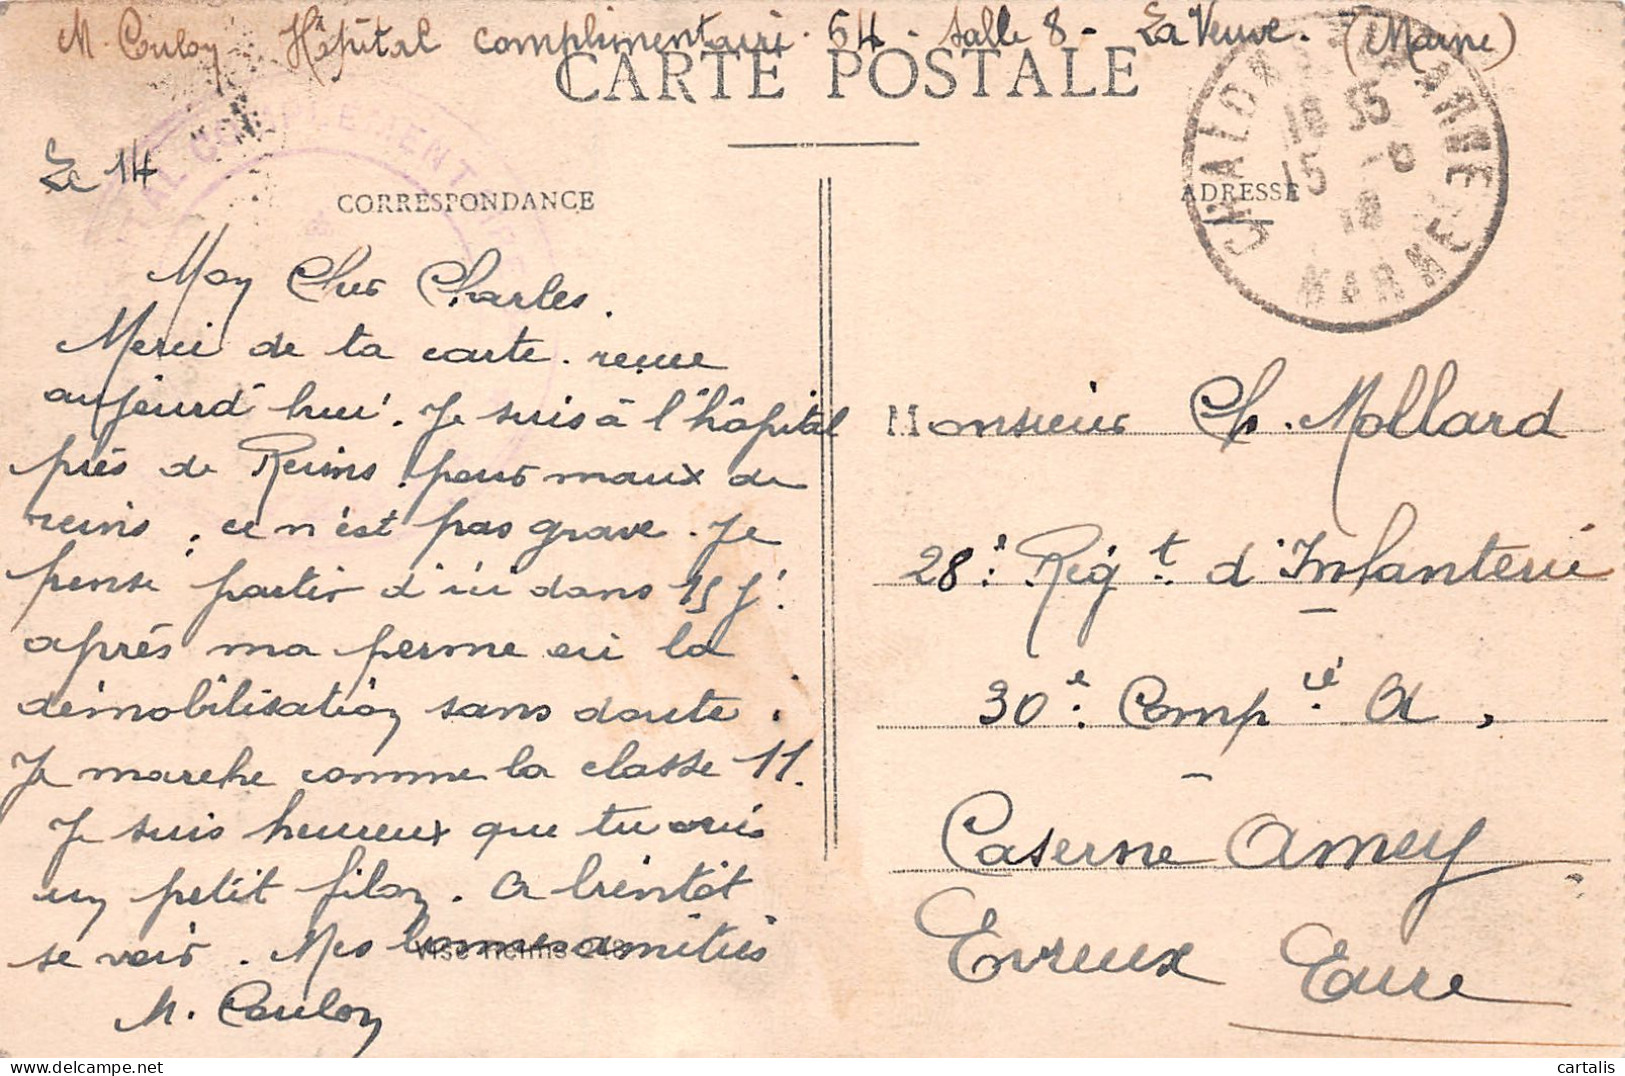 M. Coulon Hôpital complimentaire 64 - Salle 8 - La Veuve. (Marne)
CARTE POSTALE
Le 14
CORRESPONDANCE
ADRESSE
18 35
15 - 18
MARNE
Mon Cher Charles.
Merci de ta carte. reçue
aujourd'hui. Je suis à l'hôpital
près de Reims. pour maux de
reins, ce n'est pas grave. Je
pense partir d'ici dans 15 j.
après ma perme et la
démobilisation sans doute.
Je marche comme la classe 11.
Je suis heureux que tu aies
un petit filon. A bientôt
se voir. Mes bonnes amitiés
M. Coulon
Monsieur Ch. Mollard
28e Régt d'Infanterie
30e Compie A,
Caserne Amey
Evreux Eure
cartalis